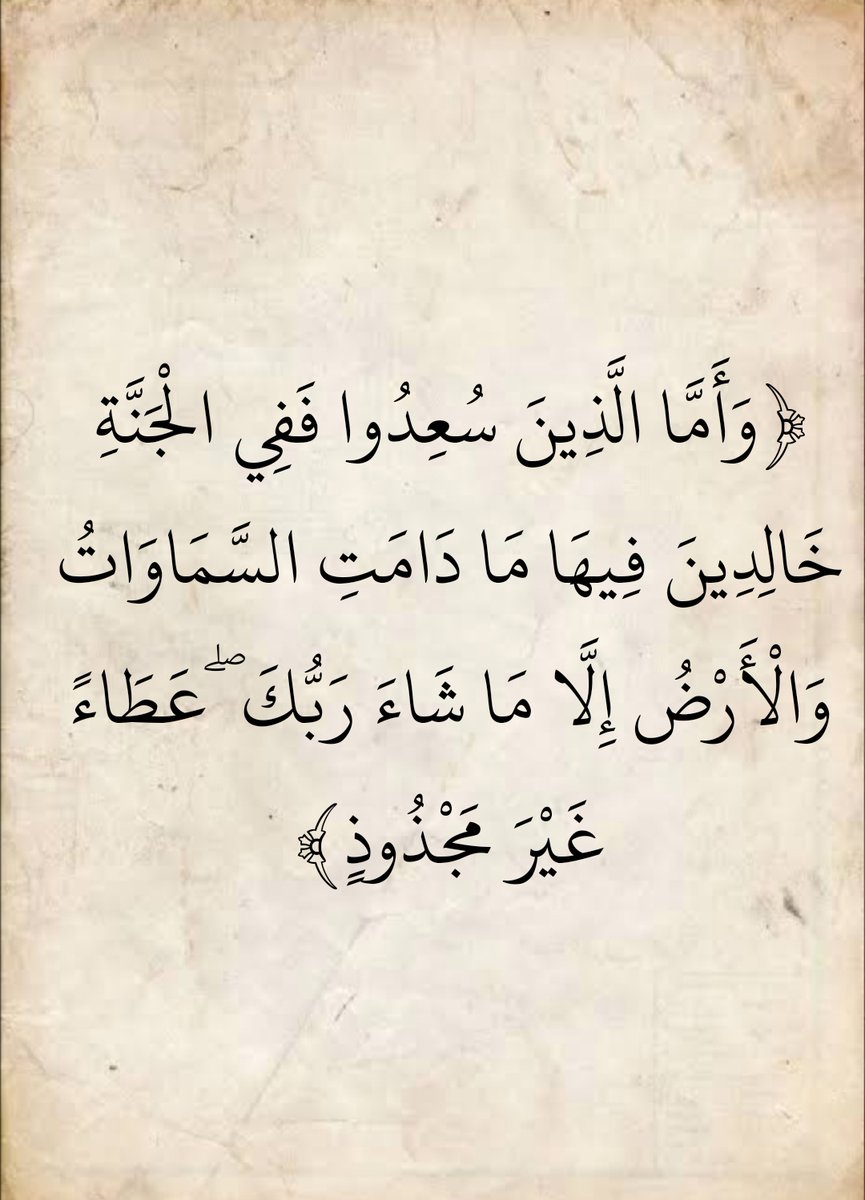 ﴿وَأَمَّا الَّذِينَ سُعِدُوا فَفِي الْجَنَّةِ
خَالِدِينَ فِيهَا مَا دَامَتِ السَّمَاوَاتُ
وَالْأَرْضُ إِلَّا مَا شَاءَ رَبُّكَ ۖ عَطَاءً
غَيْرَ مَجْذُوذٍ﴾